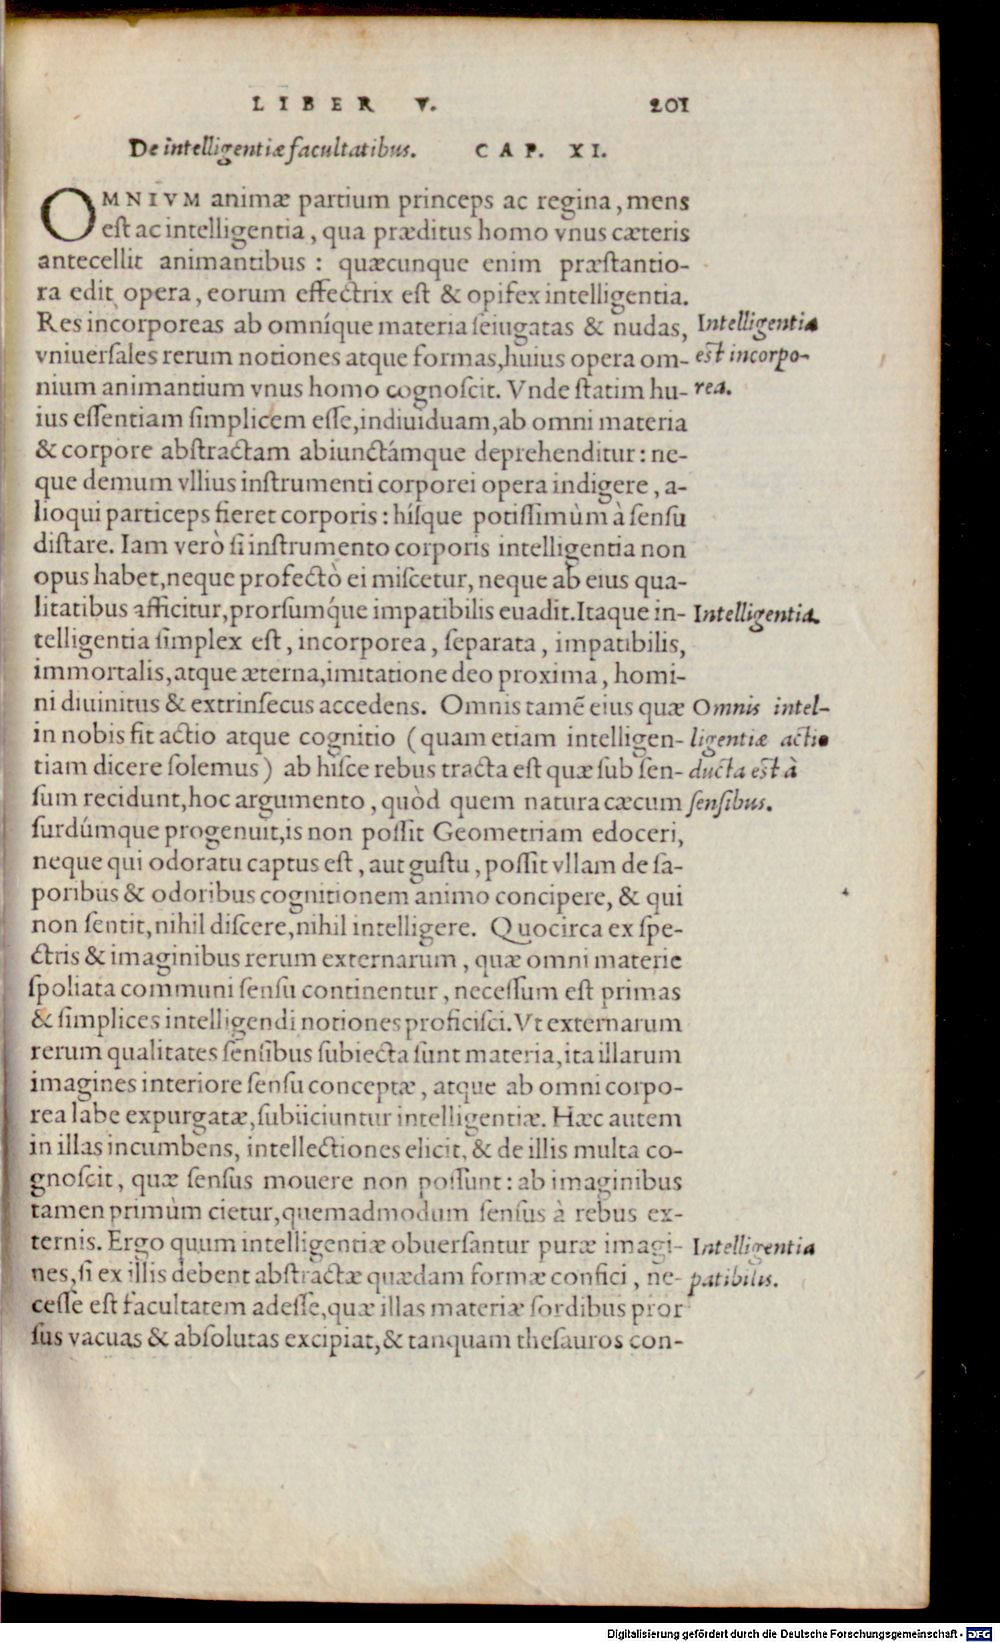 LIBER V. 201
De intelligentiæ facultatibus. CAP. XI.
OMNIVM animæ partium princeps ac regina, mens
est ac intelligentia, qua præditus homo vnus cæteris
antecellit animantibus : quæcunque enim præstantio-
ra edit opera, eorum effectrix est & opifex intelligentia.
Res incorporeas ab omníque materia seiugatas & nudas,
vniuersales rerum notiones atque formas, huius opera om-
nium animantium vnus homo cognoscit. Vnde statim hu-
ius essentiam simplicem esse, indiuiduam, ab omni materia
& corpore abstractam abiunctámque deprehenditur: ne-
que demum vllius instrumenti corporei opera indigere, a-
lioqui particeps fieret corporis: hísque potissimùm à sensu
distare. Iam verò si instrumento corporis intelligentia non
opus habet, neque profectò ei miscetur, neque ab eius qua-
litatibus afficitur, prorsumq́ue impatibilis euadit. Itaque in-
telligentia simplex est, incorporea, separata, impatibilis,
immortalis, atque æterna, imitatione deo proxima, homi-
ni diuinitus & extrinsecus accedens. Omnis tamē eius quæ
in nobis fit actio atque cognitio (quam etiam intelligen-
tiam dicere solemus) ab hisce rebus tracta est quæ sub sen-
sum recidunt, hoc argumento, quòd quem natura cæcum
surdúmque progenuit, is non possit Geometriam edoceri,
neque qui odoratu captus est, aut gustu, possit vllam de sa-
poribus & odoribus cognitionem animo concipere, & qui
non sentit, nihil discere, nihil intelligere. Quocirca ex spe-
ctris & imaginibus rerum externarum, quæ omni materie
spoliata communi sensu continentur, necessum est primas
& simplices intelligendi notiones proficisci. Vt externarum
rerum qualitates sensibus subiecta sunt materia, ita illarum
imagines interiore sensu conceptæ, atque ab omni corpo-
rea labe expurgatæ, subiiciuntur intelligentiæ. Hæc autem
in illas incumbens, intellectiones elicit, & de illis multa co-
gnoscit, quæ sensus mouere non possunt: ab imaginibus
tamen primùm cietur, quemadmodum sensus à rebus ex-
ternis. Ergo quum intelligentiæ obuersantur puræ imagi-
nes, si ex illis debent abstractæ quædam formæ confici, ne-
cesse est facultatem adesse, quæ illas materiæ sordibus pror
sus vacuas & absolutas excipiat, & tanquam thesauros con-
Intelligentia
est incorpo-
rea.
Intelligentia.
Omnis intel-
ligentiæ actio
ducta est à
sensibus.
Intelligentia
patibilis.
Digitalisierung gefördert durch die Deutsche Forschungsgemeinschaft - DFG